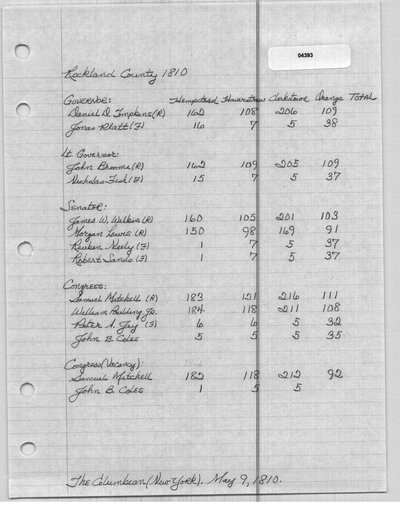 04393
Rockland County 1810
Governor: Hempstead Haverstraw Clarkstown Orange Total
Daniel D. Tompkins (R) 162 108 206 109
Jonas Platt (F) 16 7 5 38
Lt. Governor:
John Broome (R) 162 109 205 109
Nicholas Fish (F) 15 7 5 37
Senator:
James W. Wilkin (R) 160 105 201 103
Morgan Lewis (R) 150 98 169 91
Reuben Neely (F) 1 7 5 37
Robert Sands (F) 1 7 5 37
Congress:
Samuel Mitchell (R) 183 121 216 111
William Paulding, Jr. 184 118 211 108
Peter A. Jay (F) 6 6 5 32
John B. Coles 5 5 5 35
Congress (Vacancy):
Samuel Mitchell 182 118 212 92
John B. Coles 1 5 5
The Columbian (New York). May 9, 1810.